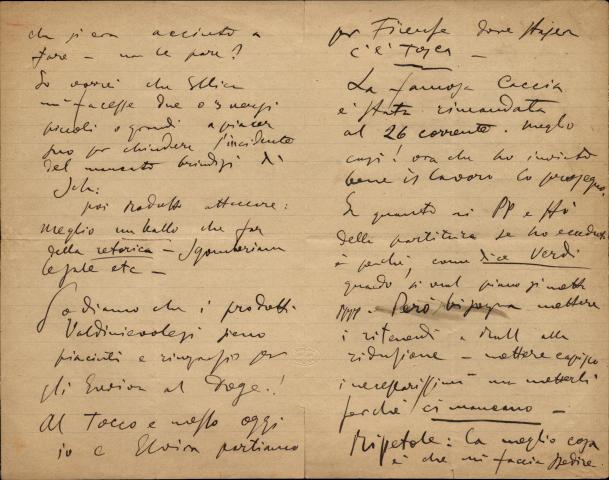 che si era accinto a
fare — non le pare?
Io vorrei che Illica
mi facesse due o 3 versi
piccoli o grandi a piacer
suo per chiudere l'incidente
del mancato brindisi di
Sch:
poi subito attaccare:
meglio un ballo che far
della retorica — Sgomberiam
le sale etc —
Godiamo che i prodotti
Valdinievolesi sieno
piaciuti e ringrazio per
gli Evviva al Doge!
Al Tocco e mezzo oggi
io e Elvira partiamo
per Firenze dove stasera
c'è Tosca —
La famosa Caccia
è stata rimandata
al 26 corrente. meglio
così! ora che ho avviato
bene il lavoro lo proseguo.
In quanto ai PP e
della partitura se ho ecceduto
è perché, come dice Verdi
quando si vuol piano si mette
PPPP — Però bisogna mettere
i ritenendi e rall alla
riduzione — mettere capisco
i necessarissimi ma metterli
perché ci mancano —
Ripetole: la meglio cosa
è che mi faccia spedire